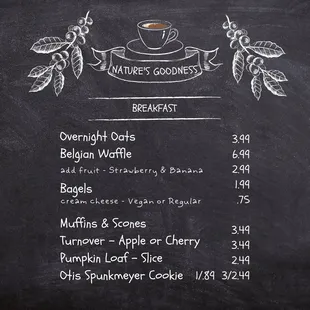 NATURE'S GOODNESS
BREAKFAST
Overnight Oats 3.99
Belgian Waffle 6.99
add fruit - Strawberry & Banana 2.99
Bagels 1.99
cream cheese - Vegan or Regular .75
Muffins & Scones 3.49
Turnover - Apple or Cherry 3.49
Pumpkin Loaf - Slice 2.49
Otis Spunkmeyer Cookie 1/.89 3/2.49